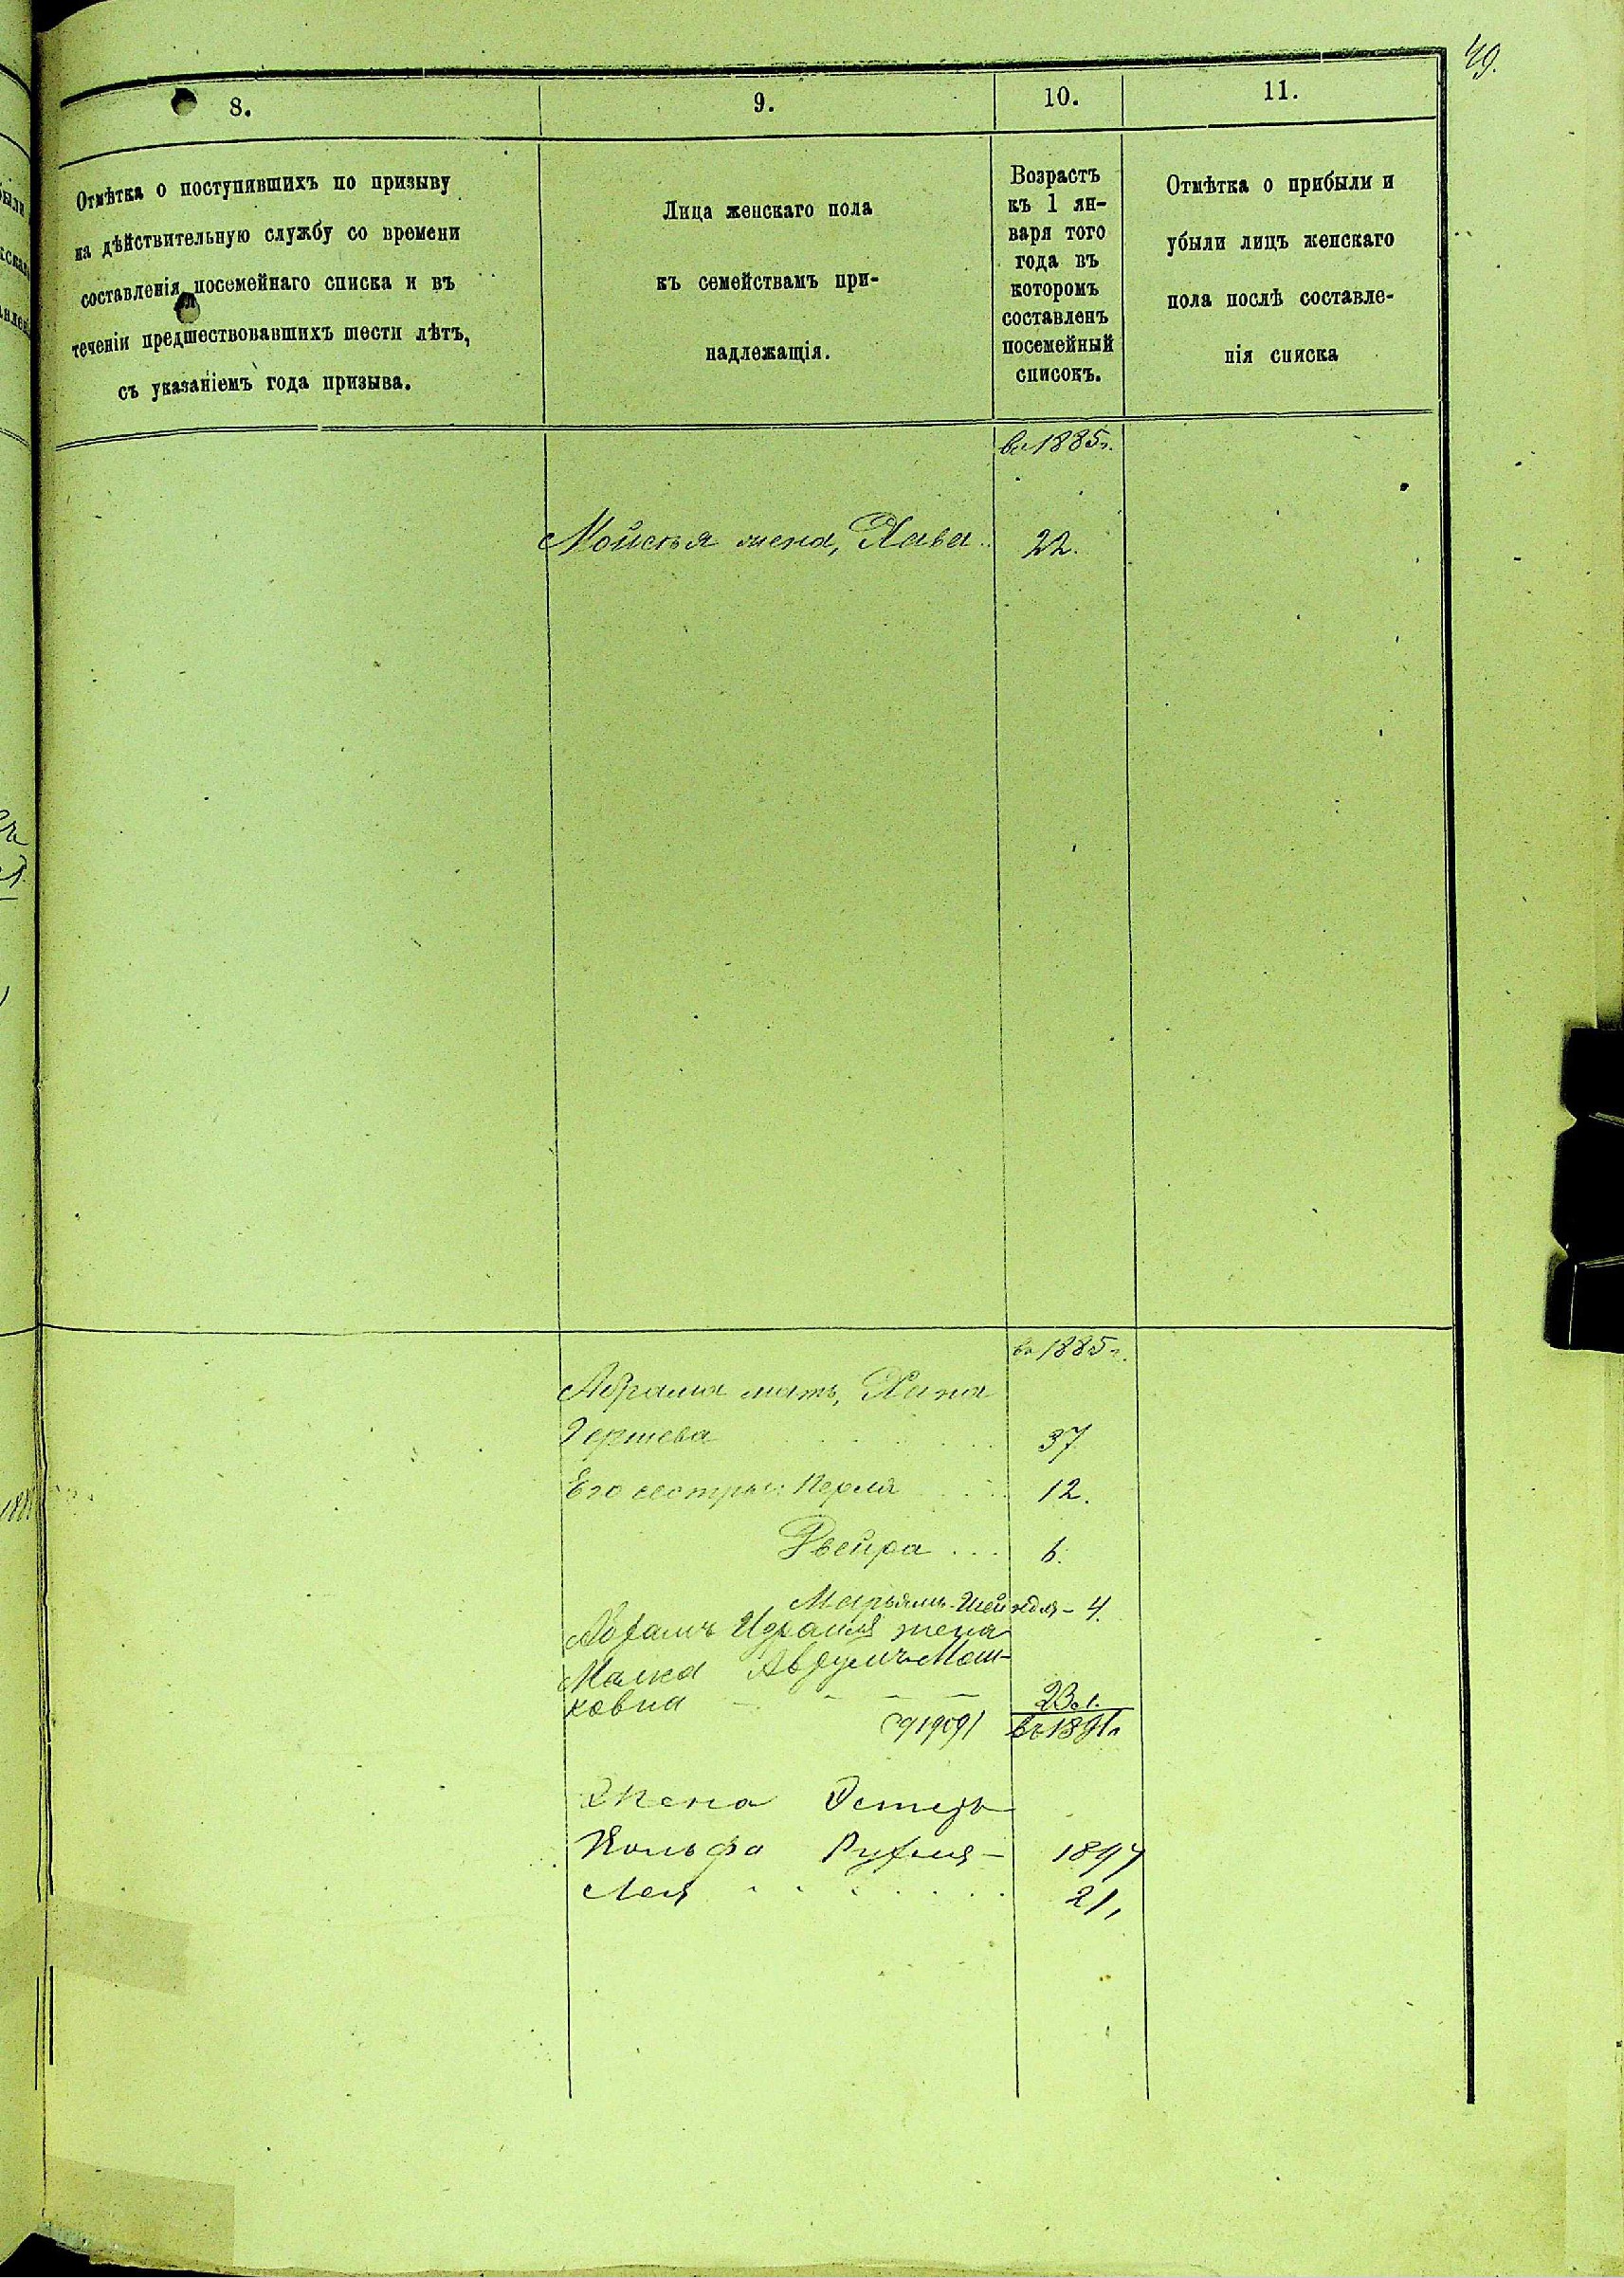 49.
8.
9.
10.
11.
Отмѣтка о поступившихъ по призыву
на дѣйствительную службу со времени
составленія посемейнаго списка и въ
теченіи предшествовавшихъ шести лѣтъ,
съ указаніемъ года призыва.
Лица женскаго пола
къ семействамъ при-
надлежащія.
Возрастъ
къ 1 ян-
варя того
года въ
которомъ
составленъ
посемейный
списокъ.
Отмѣтка о прибыли и
убыли лицъ женскаго
пола послѣ составле-
нія списка
въ 1885г.
Мойсѣя жена, Хава 22.
въ 1885г.
Абрама мать, Хана
Гершева 37
Его сестры: Перля 12.
Двейра 6.
Марьямъ-Шейндля - 4.
Абрамъ Израиля жена
Малка Аврумъ-Мош-
ковна 23 л.
въ 1891г
Жена Эстеръ
Вольфа Рухля - 1897
Лея 21,